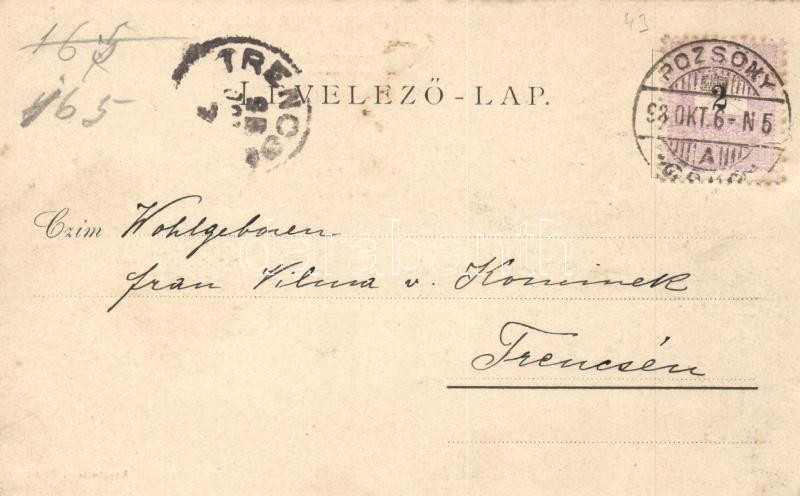 43
165
165
TRENCS
LEVELEZŐ-LAP.
POZSONY
2
98 OKT. 6 - N 5
A
Czim Wohlgeboren
frau Vilma v. Kominek
Trencsén
darabanth